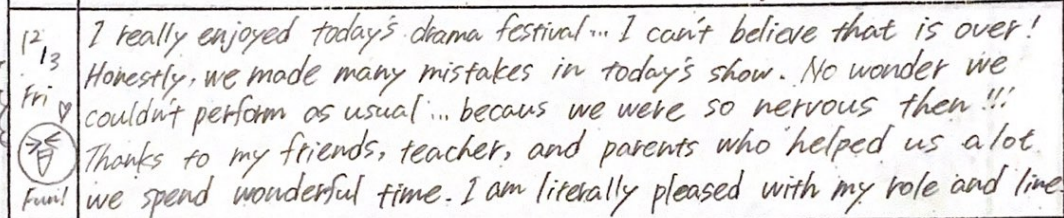 12/13
Fri ♡
Fun!
I really enjoyed today's drama festival... I can't believe that is over!
Honestly, we made many mistakes in today's show. No wonder we
couldn't perform as usual... becaus we were so nervous then!!!
Thanks to my friends, teacher, and parents who helped us a lot
we spend wonderful time. I am literally pleased with my role and line